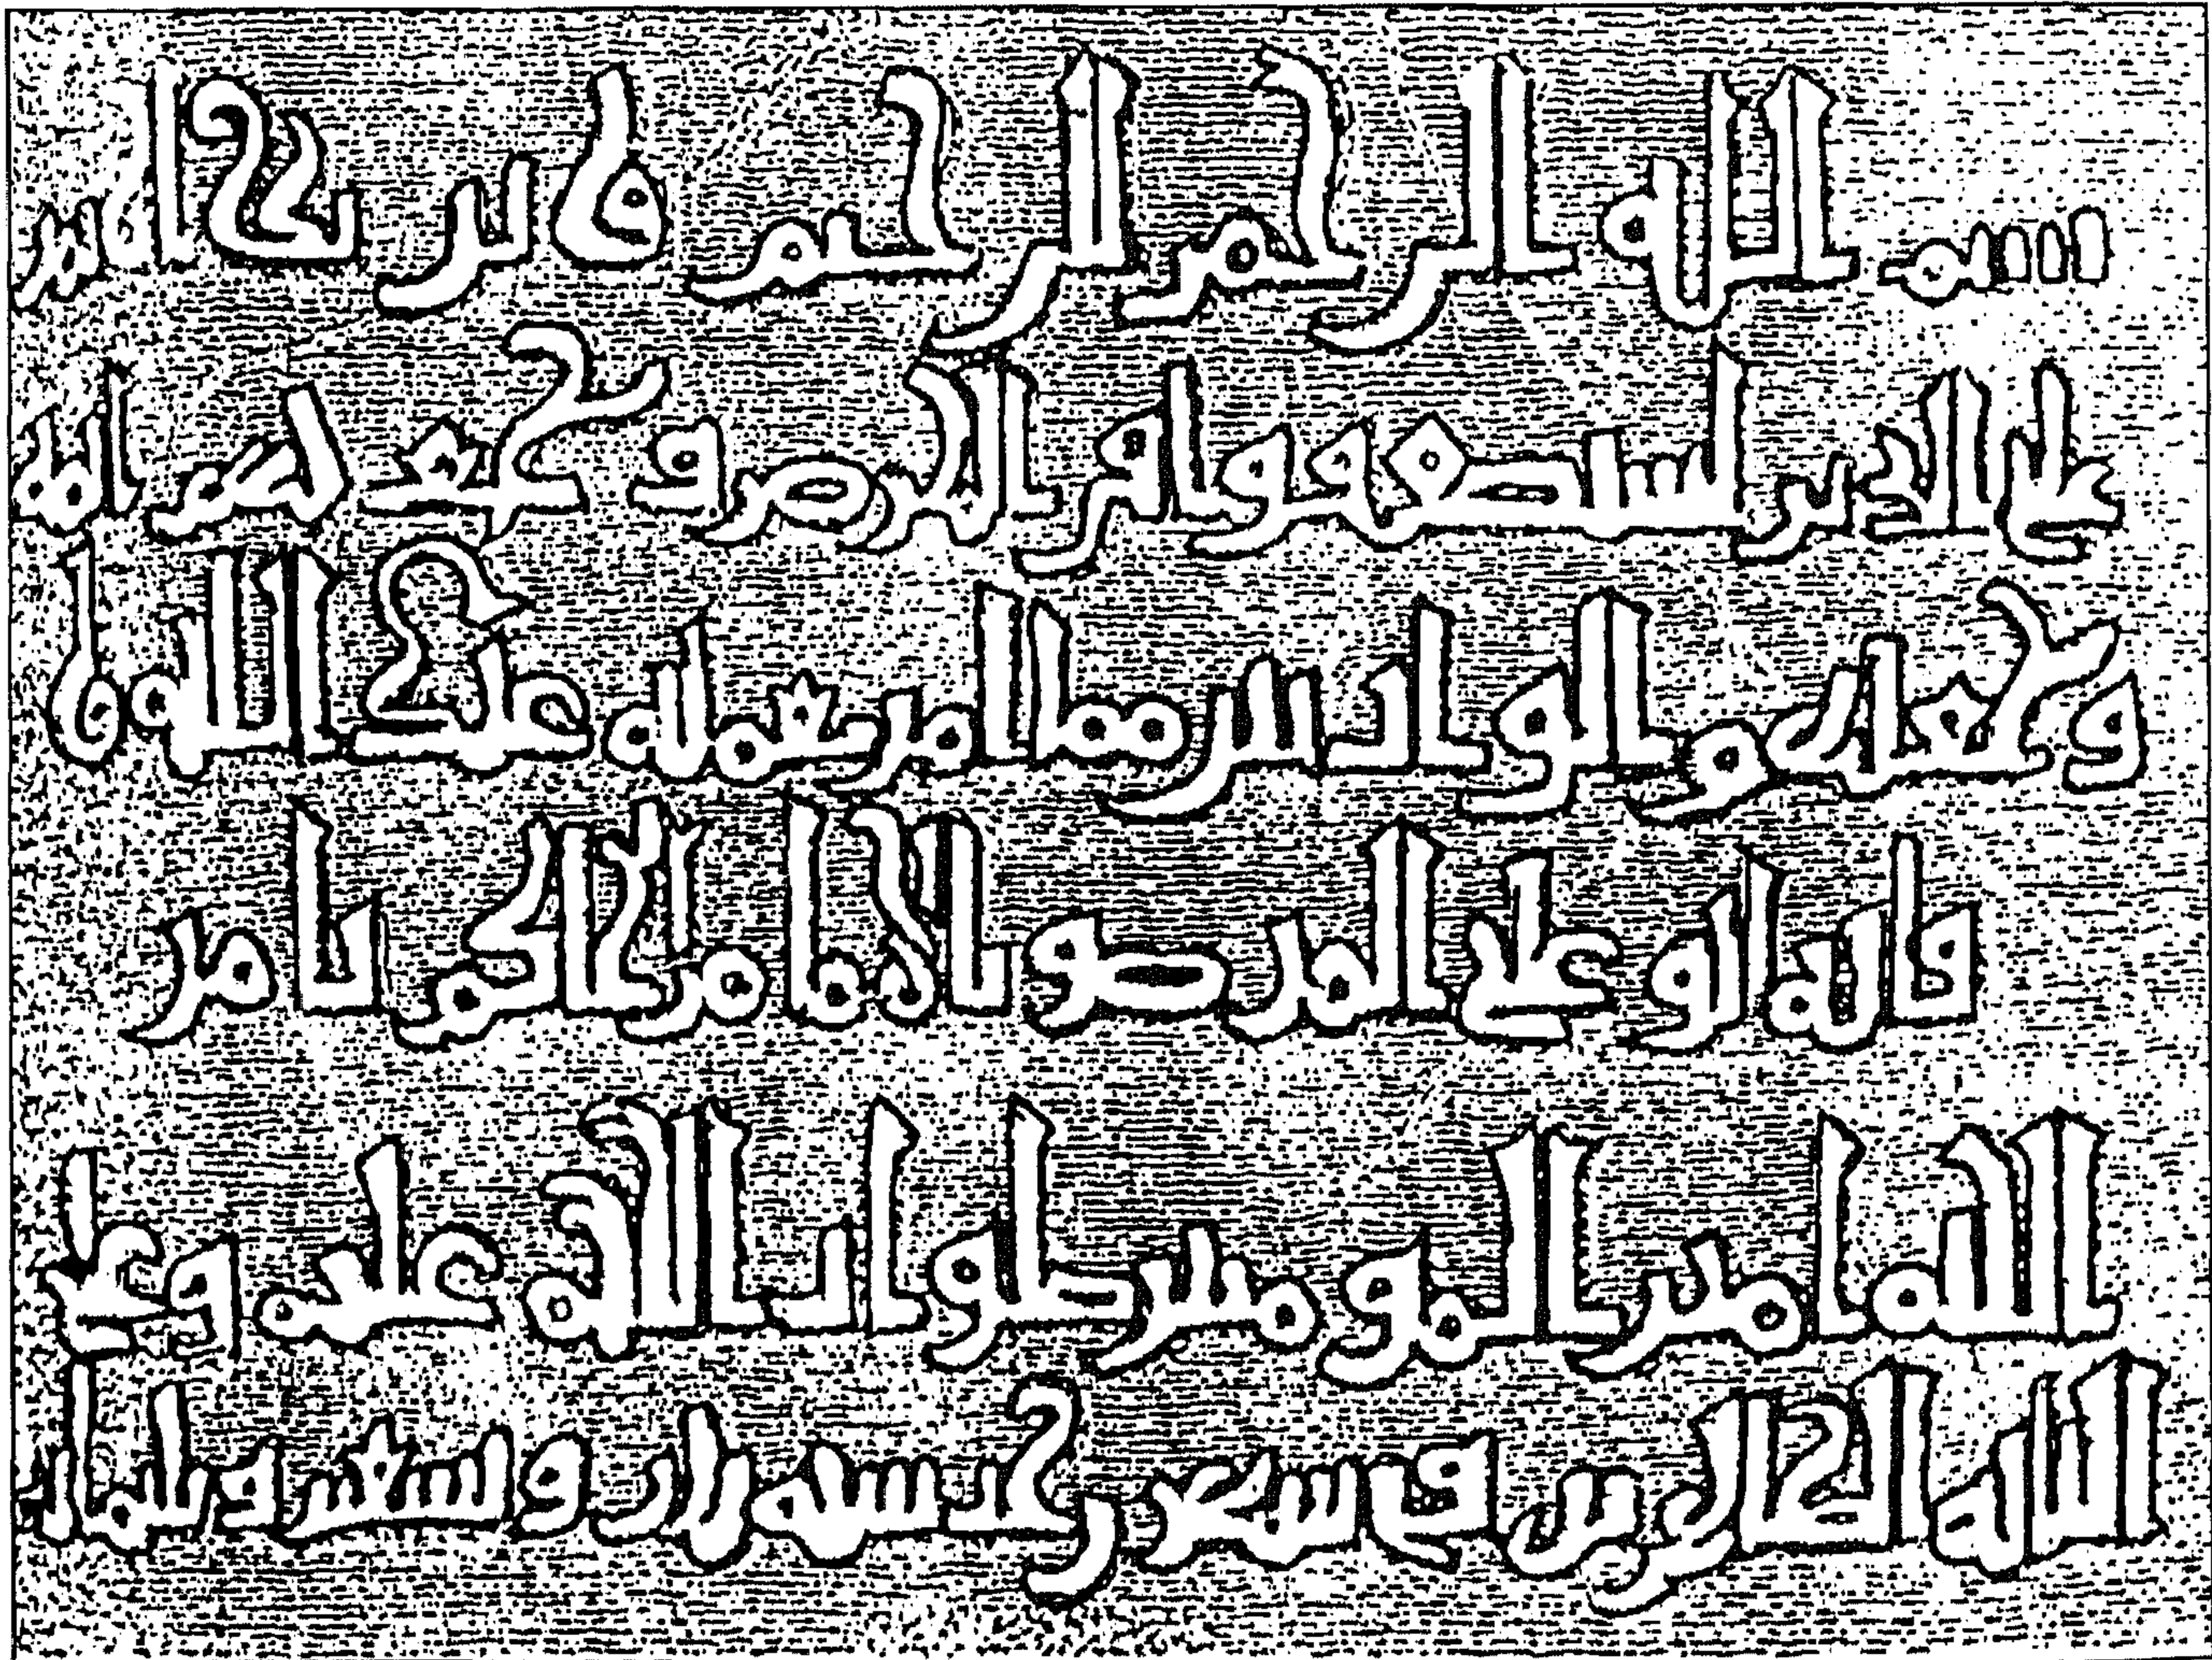 بسم الله الرحمن الرحيم ونريد ان نمن
على الذين استضعفوا في الارض ونجعلهم ائمة
ونجعلهم الوارثين مما امر بعمله عبد الله
ووليه ابو علي المنصور الامام الحاكم بامر
الله امير المؤمنين صلوات الله عليه وعلى
ابائه الطاهرين في شهر رجب سنة وتسعين وثلثمائة